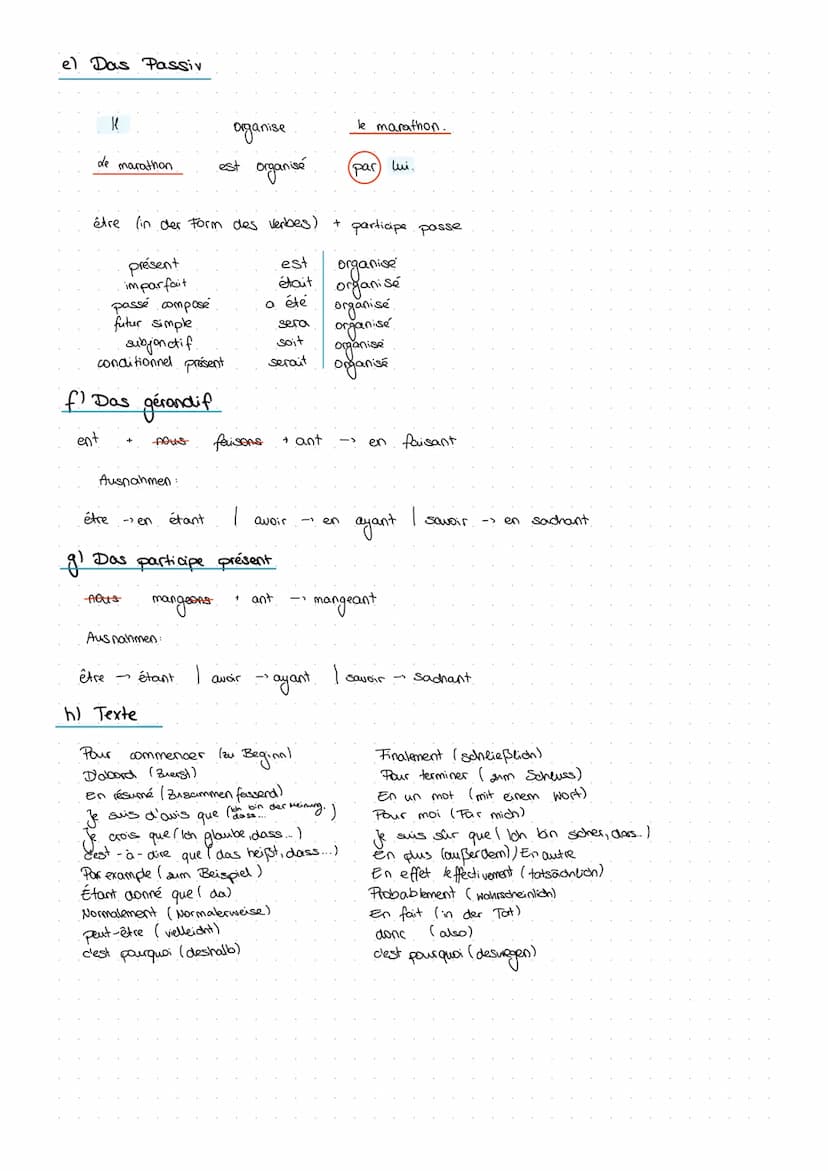 e) Das Passiv
Il organise le marathon.
de marathon est organisé par lui.
être (in der Form des Verbes) + participe passe
présent est organisé
imparfait était organisé
passé composé a été organisé
futur simple sera organisé
subjonctif soit organisé
conditionnel présent serait organisé
f) Das gérondif
ent + nous faisons + ant -> en faisant
Ausnahmen:
être -> en étant | avoir -> en ayant | savoir -> en sachant
g) Das participe présent
nous mangeons + ant -> mangeant
Ausnahmen:
être -> étant | avoir -> ayant | savoir -> sachant
h) Texte
Pour commencer (zu Beginn)
D'abord (Zuerst)
En résumé (Zusammenfassend)
Je suis d'avis que (Ich bin der Meinung, dass...)
Je crois que (Ich glaube, dass...)
c'est-à-dire que (das heißt, dass...)
Par example (zum Beispiel)
Étant donné que (da)
Normalement (Normalerweise)
peut-être (vielleicht)
c'est pourquoi (deshalb)
Finalement (schließlich)
Pour terminer (zum Schluss)
En un mot (mit einem Wort)
Pour moi (Für mich)
Je suis sûr que (Ich bin sicher, dass..)
En plus (außerdem) / En autre
En effet / effectivement (tatsächlich)
Probablement (wahrscheinlich)
En fait (in der Tat)
donc (also)
c'est pourquoi (deswegen)